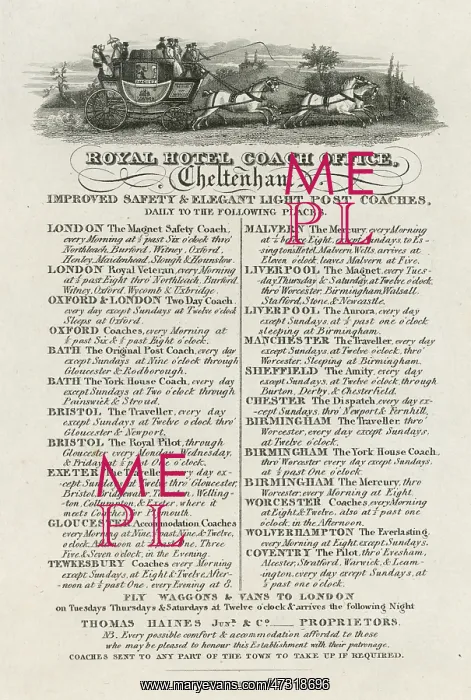 ROYAL HOTEL COACH OFFICE,
Cheltenham
IMPROVED SAFETY & ELEGANT LIGHT POST COACHES,
DAILY TO THE FOLLOWING PLACES.
LONDON The Magnet Safety Coach,
every Morning at ¼ past Six o'clock thro'
Northleach, Burford, Witney, Oxford,
Henley, Maidenhead, Slough & Hounslow.
LONDON Royal Veteran, every Morning
at ¼ past Eight thro' Northleach, Burford,
Witney, Oxford, Wycomb & Uxbridge.
OXFORD & LONDON Two Day Coach,
every day except Sundays at Twelve o'clock
Sleeps at Oxford.
OXFORD Coaches, every Morning at
¼ past Six & ¼ past Eight o'clock.
BATH The Original Post Coach, every day
except Sundays at Nine o'clock through
Gloucester & Rodborough.
BATH The York House Coach, every day
except Sundays at Two o'clock through
Painswick & Stroud.
BRISTOL The Traveller, every day
except Sundays at Twelve o'clock thro'
Gloucester & Newport.
BRISTOL The Royal Pilot, through
Gloucester every Monday, Wednesday,
& Friday at past One o'clock.
EXETER The Traveller every day ex-
cept Sundays thro' Gloucester,
Bristol, Welling-
ton, Collumpton, & Exeter, where it
meets Coaches Plymouth.
GLOUCESTER Accommodation Coaches
every Morning at Nine, Nine, & Twelve,
o'clock, Afternoon at One, Three
Five & Seven o'clock, in the Evening.
TEWKESBURY Coaches every Morning
except Sundays, at Eight & Twelve, After-
noon at ½ past One, every Evening at 8.
MALVERN The Mercury, every Morning
at before Eight, except Sundays to Es-
singtons Hotel, Malvern Wells, arrives at
Eleven o'clock, leaves Malvern at Five.
LIVERPOOL The Magnet, every Tues-
day, Thursday & Saturday, at Twelve o'clock
thro' Worcester, Birmingham, Walsall,
Stafford, Stone, & Newcastle.
LIVERPOOL The Aurora, every day
except Sundays, at ½ past one o'clock
sleeping at Birmingham.
MANCHESTER The Traveller, every day
except Sundays, at Twelve o'clock, thro'
Worcester, Sleeping at Birmingham.
SHEFFIELD The Amity, every day
except Sundays, at Twelve o'clock, through
Burton, Derby, & Chesterfield.
CHESTER The Dispatch, every day ex-
-cept Sundays, thro' Newport & Fernhill,
BIRMINGHAM The Traveller, thro'
Worcester, every day except Sundays,
at Twelve o'clock.
BIRMINGHAM The York House Coach,
thro' Worcester every day except Sundays,
at ½ past One o'clock.
BIRMINGHAM The Mercury, thro'
Worcester, every Morning at Eight.
WORCESTER Coaches, every Morning
at Eight & Twelve, also at ½ past one
o'clock, in the Afternoon.
WOLVERHAMPTON The Everlasting,
every Morning at Eight, except Sundays.
COVENTRY The Pilot, thro' Evesham,
Alcester, Stratford, Warwick, & Leam-
-ington, every day except Sundays, at
½ past one o'clock.
FLY WAGGONS & VANS TO LONDON
on Tuesdays Thursdays & Saturdays at Twelve o'clock & arrives the following Night
THOMAS HAINES Junr. & Co. PROPRIETORS.
NB. Every possible comfort & accommodation afforded to those
who may be pleased to honour this Establishment with their patronage.
COACHES SENT TO ANY PART OF THE TOWN TO TAKE UP IF REQUIRED.
ME
PL
ME
PL
www.maryevans.com/47318696